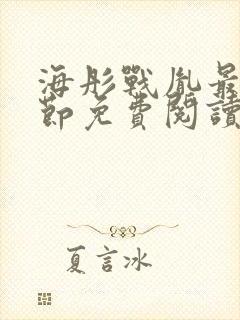 海彤戰胤最
節免費閱讀
夏言冰